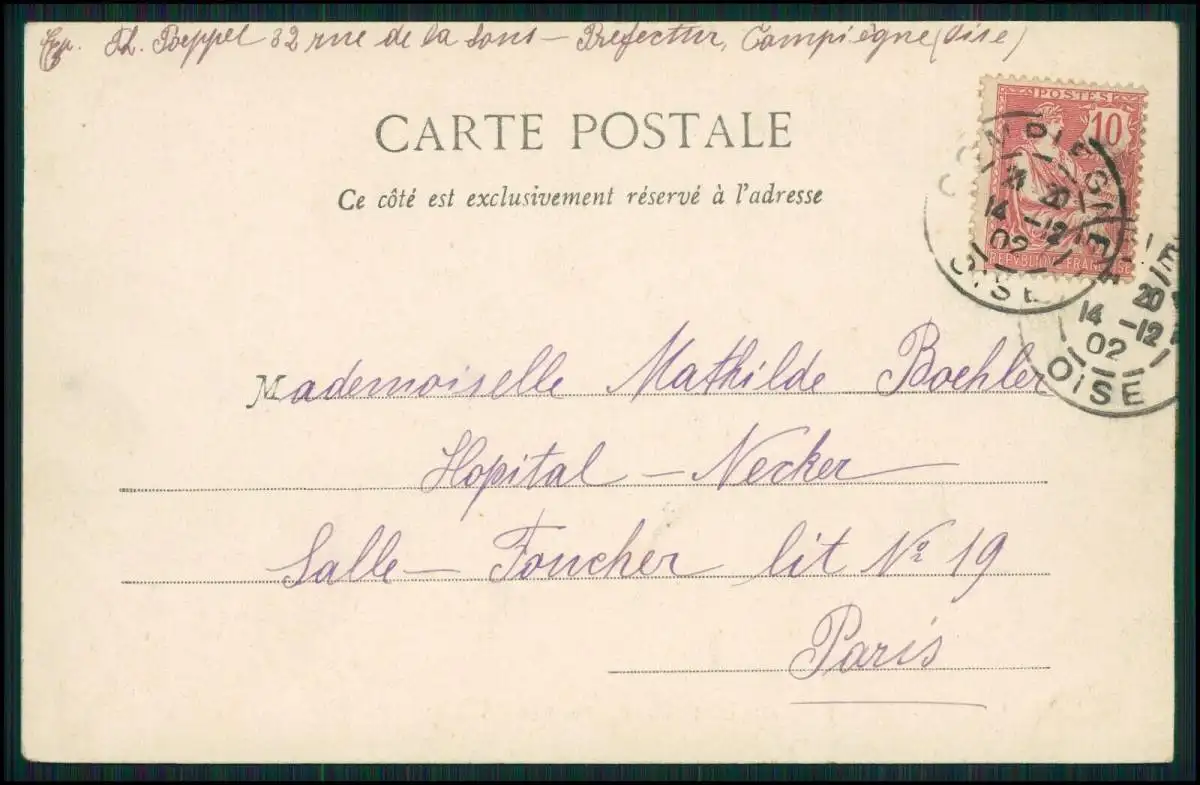 Exp. Th. Poeppel 32 rue de la Sous – Préfectur, Campiègne (Oise)
POSTES
10
CARTE POSTALE
Ce côté est exclusivement réservé à l'adresse
COMPIEGNE
20
14 -12
02
OISE
REPUBLIQUE FRANCAISE
IE
20
14 -12
02
OISE
Mademoiselle Mathilde Boehler
Hopital – Necker
Salle – Foucher lit No 19
Paris